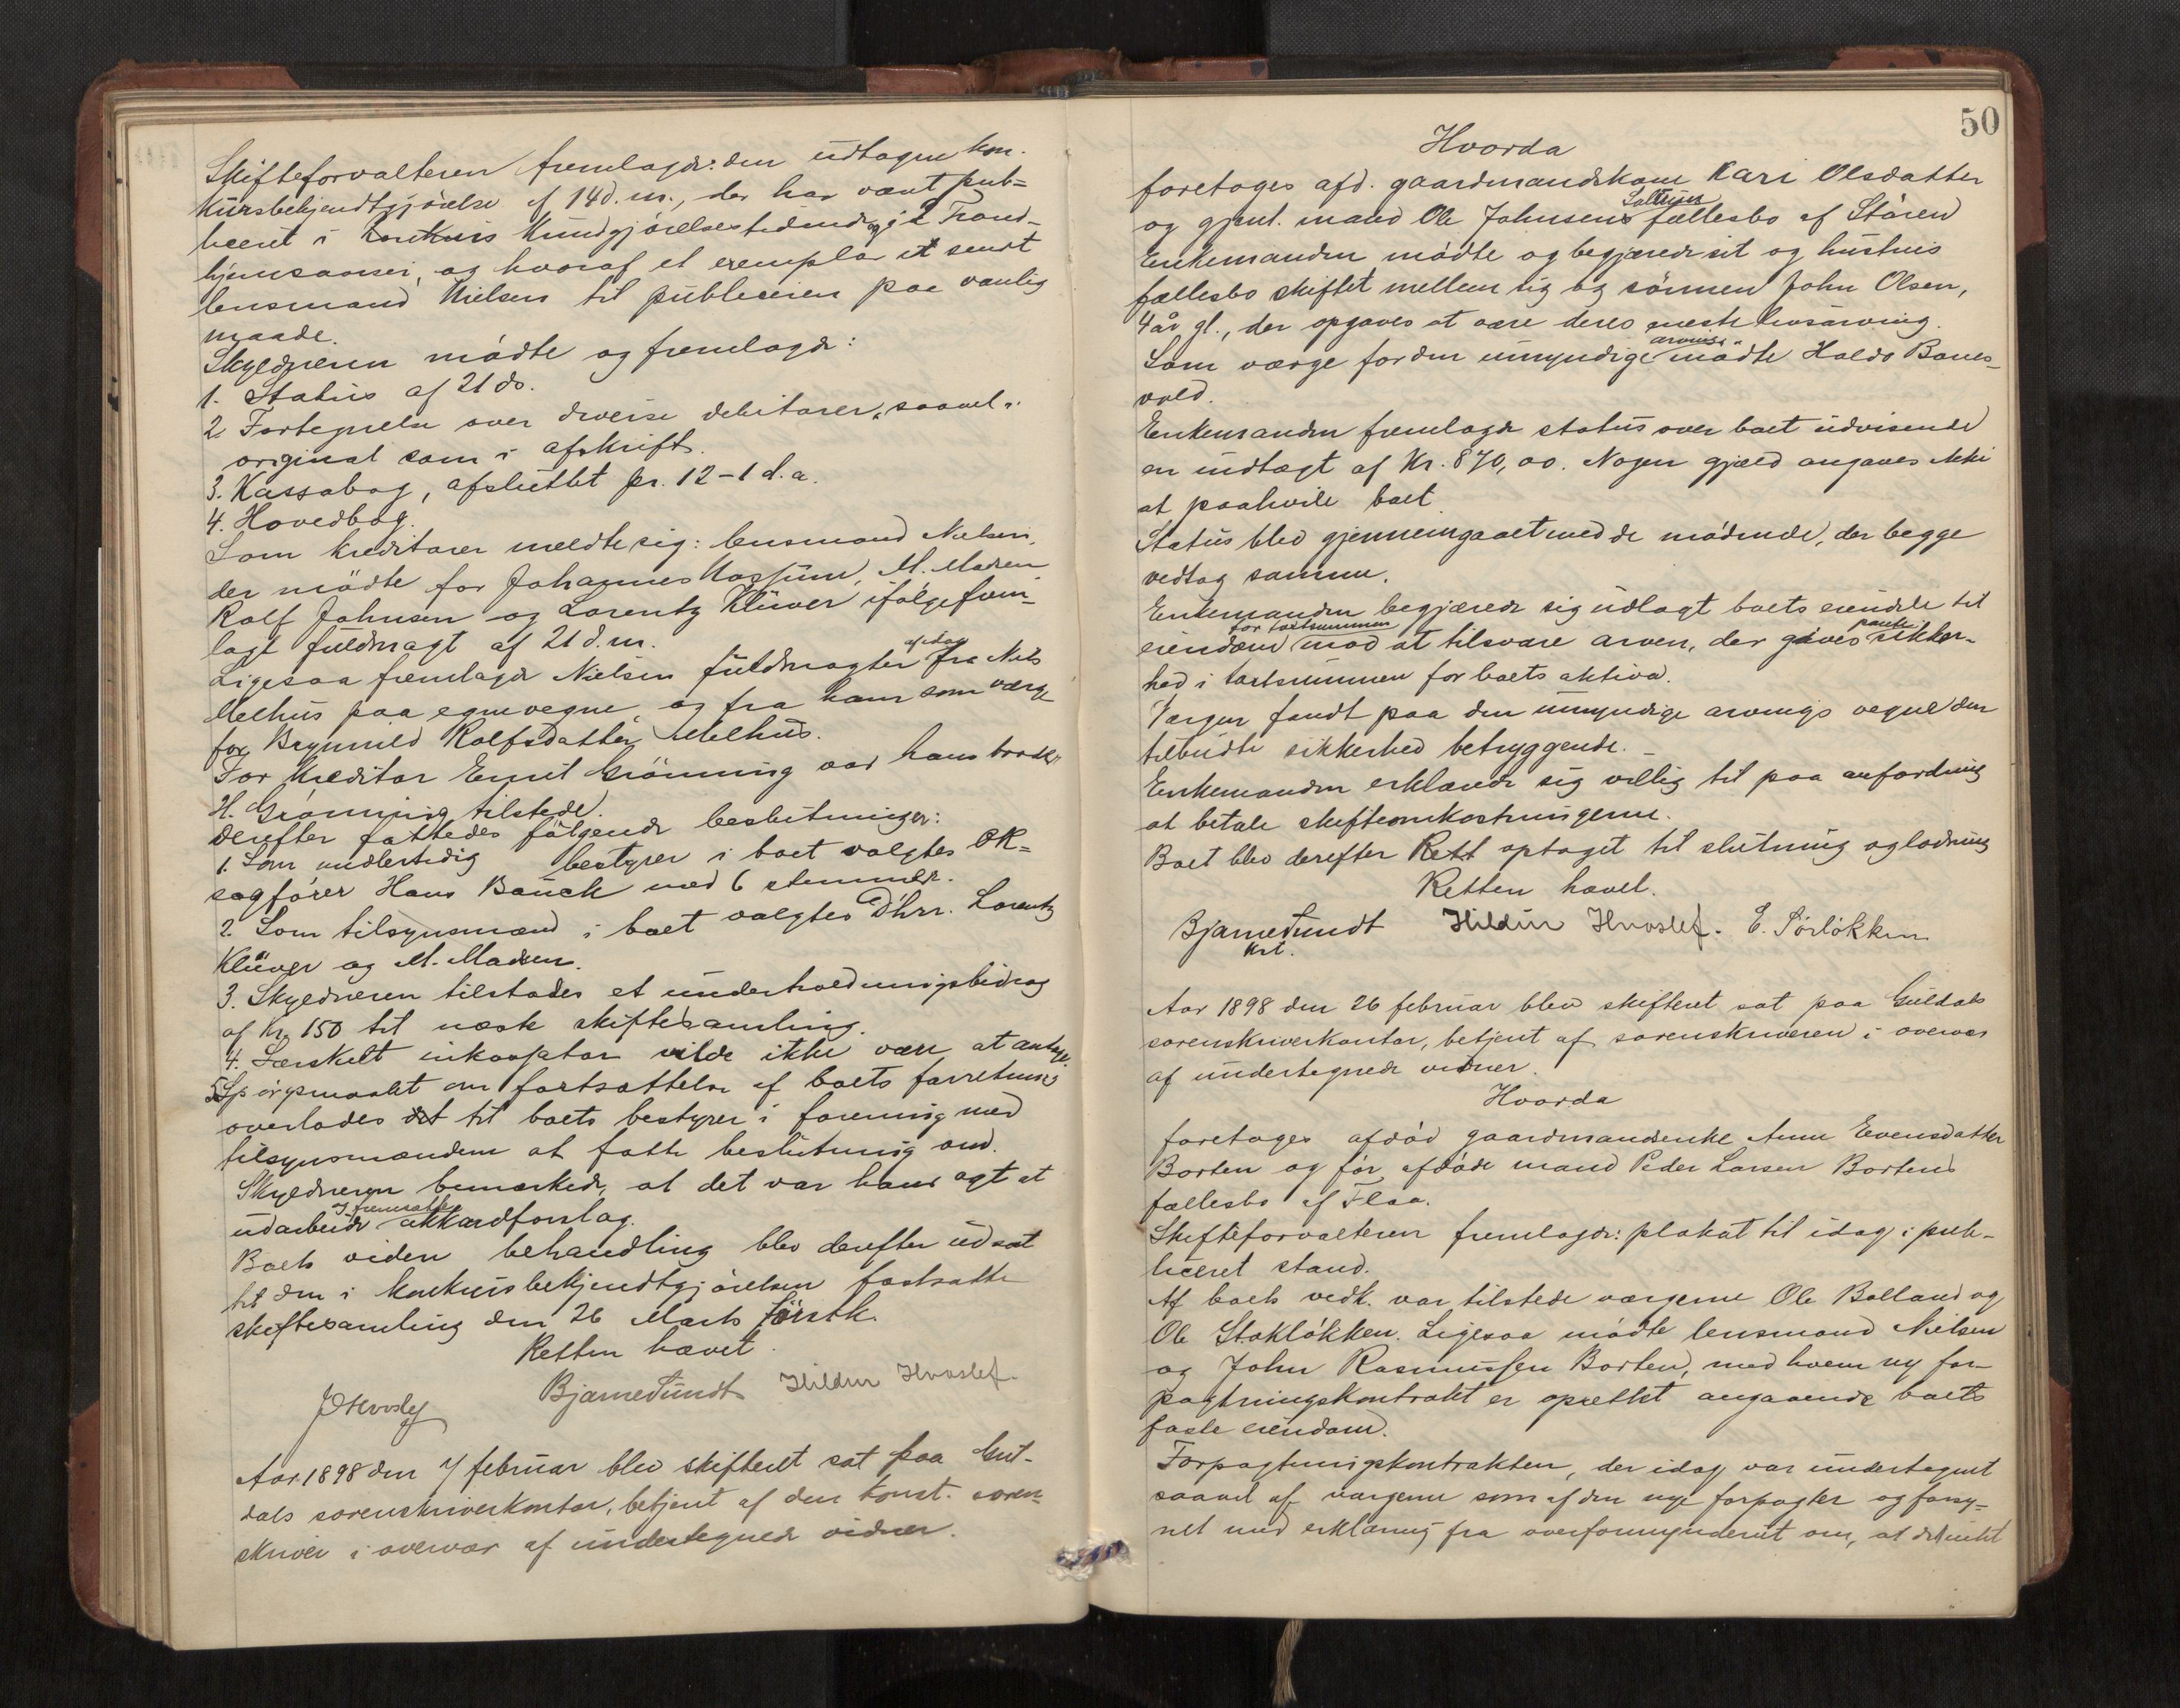 Skifteforvalteren fremlagde: den udtagne kon-
kursbekjendtgjörelse af 14 d. m., der har været pub-
liceret i Kundgjörelsestidende og i Trond-
hjemsavisen, og hvoraf et exemplar er sendt
lensmand Nielsen til publicering paa vanlig
maade.
Skyldneren mödte og fremlagde:
1. Status af 21 ds.
2. Fortegnelse over diverse debitorer, saavel i
original som i afskrift.
3. Kassabog, afsluttet pr. 12-1 d. a.
4. Hovedbog.
Som kreditorer meldte sig: lensmand Nielsen,
der mödte for Johannes M. Madsen
Rolf Johnsen og Lorentz Klüver ifölge frem-
lagt fuldmagt af 21 d. m.
Ligesaa fremlagde Nielsen fuldmagter af idag fra Nils
Melhus paa egne vegne og fra ham som værge
for Brynhild Rolfsdatter Melhus.
For kreditor Emil Grönning var hans broder
H. Grönning tilstede.
Derefter fattedes fölgende beslutninger:
1. Som midlertidig bestyrer i boet valgtes OR-
sagförer Hans Bauck med 6 stemmer.
2. Som tilsynsmænd i boet valgtes Dhrr. Lorentz
Klüver og M. Madsen.
3. Skyldneren tilstodes et underholdningsbidrag
af Kr. 150 til næste skiftesamling.
4. Særskilt inkassator vilde ikke være at antage.
5. Spörgsmaalet om fortsættelse af boets forretning
overlodes det til boets bestyrer i forening med
tilsynsmændene at fatte beslutning om.
Skyldneren bemærkede, at det var hans agt at
udarbeide og fremsætte akkordforslag.
Boets videre behandling blev derefter udsat
til den i konkursbekjendtgjörelsen fastsatte
skiftesamling den 26 Marts förstk.
Retten hævet.
J Hvoslef Bjarne Sundt Hildur Hvoslef.
Aar 1898 den 7 februar blev skifteret sat paa Gul-
dals sorenskriverkontor, betjent af den konst. soren-
skriver i overvær af undertegnede vidner.
50
Hvorda
foretoges afd. gaardmandskone Kari Olsdatter
og gjenl. mand Ole Johnsens fællesbo af Stören
Enkemanden mödte og begjærede sit og hustrus
fællesbo skiftet mellem sig og sönnen John Olsen,
4 år gl., der opgaves at være deres eneste livsarving.
Som værge for den umyndige arving mödte Haldo Bones-
vold.
Enkemanden fremlagde status over boet udvisende
en indtægt af Kr. 870,00. Nogen gjæld angaves ikke
at paahvile boet.
Status blev gjennemgaaet med de mödende, der begge
vedtog samme.
Enkemanden begjærede sig udlagt boets eiendele til
eiendom for takstsummen mod at tilsvare arven, der gives pante sikker-
hed i takstsummen for boets aktiva.
Værgen fandt paa den umyndige arvings vegne den
tilbudte sikkerhed betryggende.
Enkemanden erklærede sig villig til paa anfordring
at betale skifteomkostningerne.
Boet blev derefter optaget til slutning og lodning
Retten hævet.
Bjarne Sundt Hildur Hvoslef. E. Sörlökken
kst.
Aar 1898 den 26 februar blev skifteret sat paa Guldals
sorenskriverkontor, betjent af sorenskriveren i overvær
af undertegnede vidner.
Hvorda
foretoges afdöd gaardmandsenke Anne Evensdatter
Borten og för afdöde mand Peder Larsen Bortens
fællesbo af Flaa.
Skifteforvalteren fremlagde: plakat til idag i pub-
liceret stand.
Af boets vedk. var tilstede værgerne Ole Bolland og
Ole Staklökken. Ligesaa mödte lensmand Nielsen
og John Rasmussen Borten, med hvem ny for-
pagtningskontrakt er oprettet angaaende boets
faste eiendom.
Forpagtningskontrakten, der idag var undertegnet
saavel af værgerne som af den nye forpagter og forsy-
net med erklæring fra overformynderiet om, at det intet